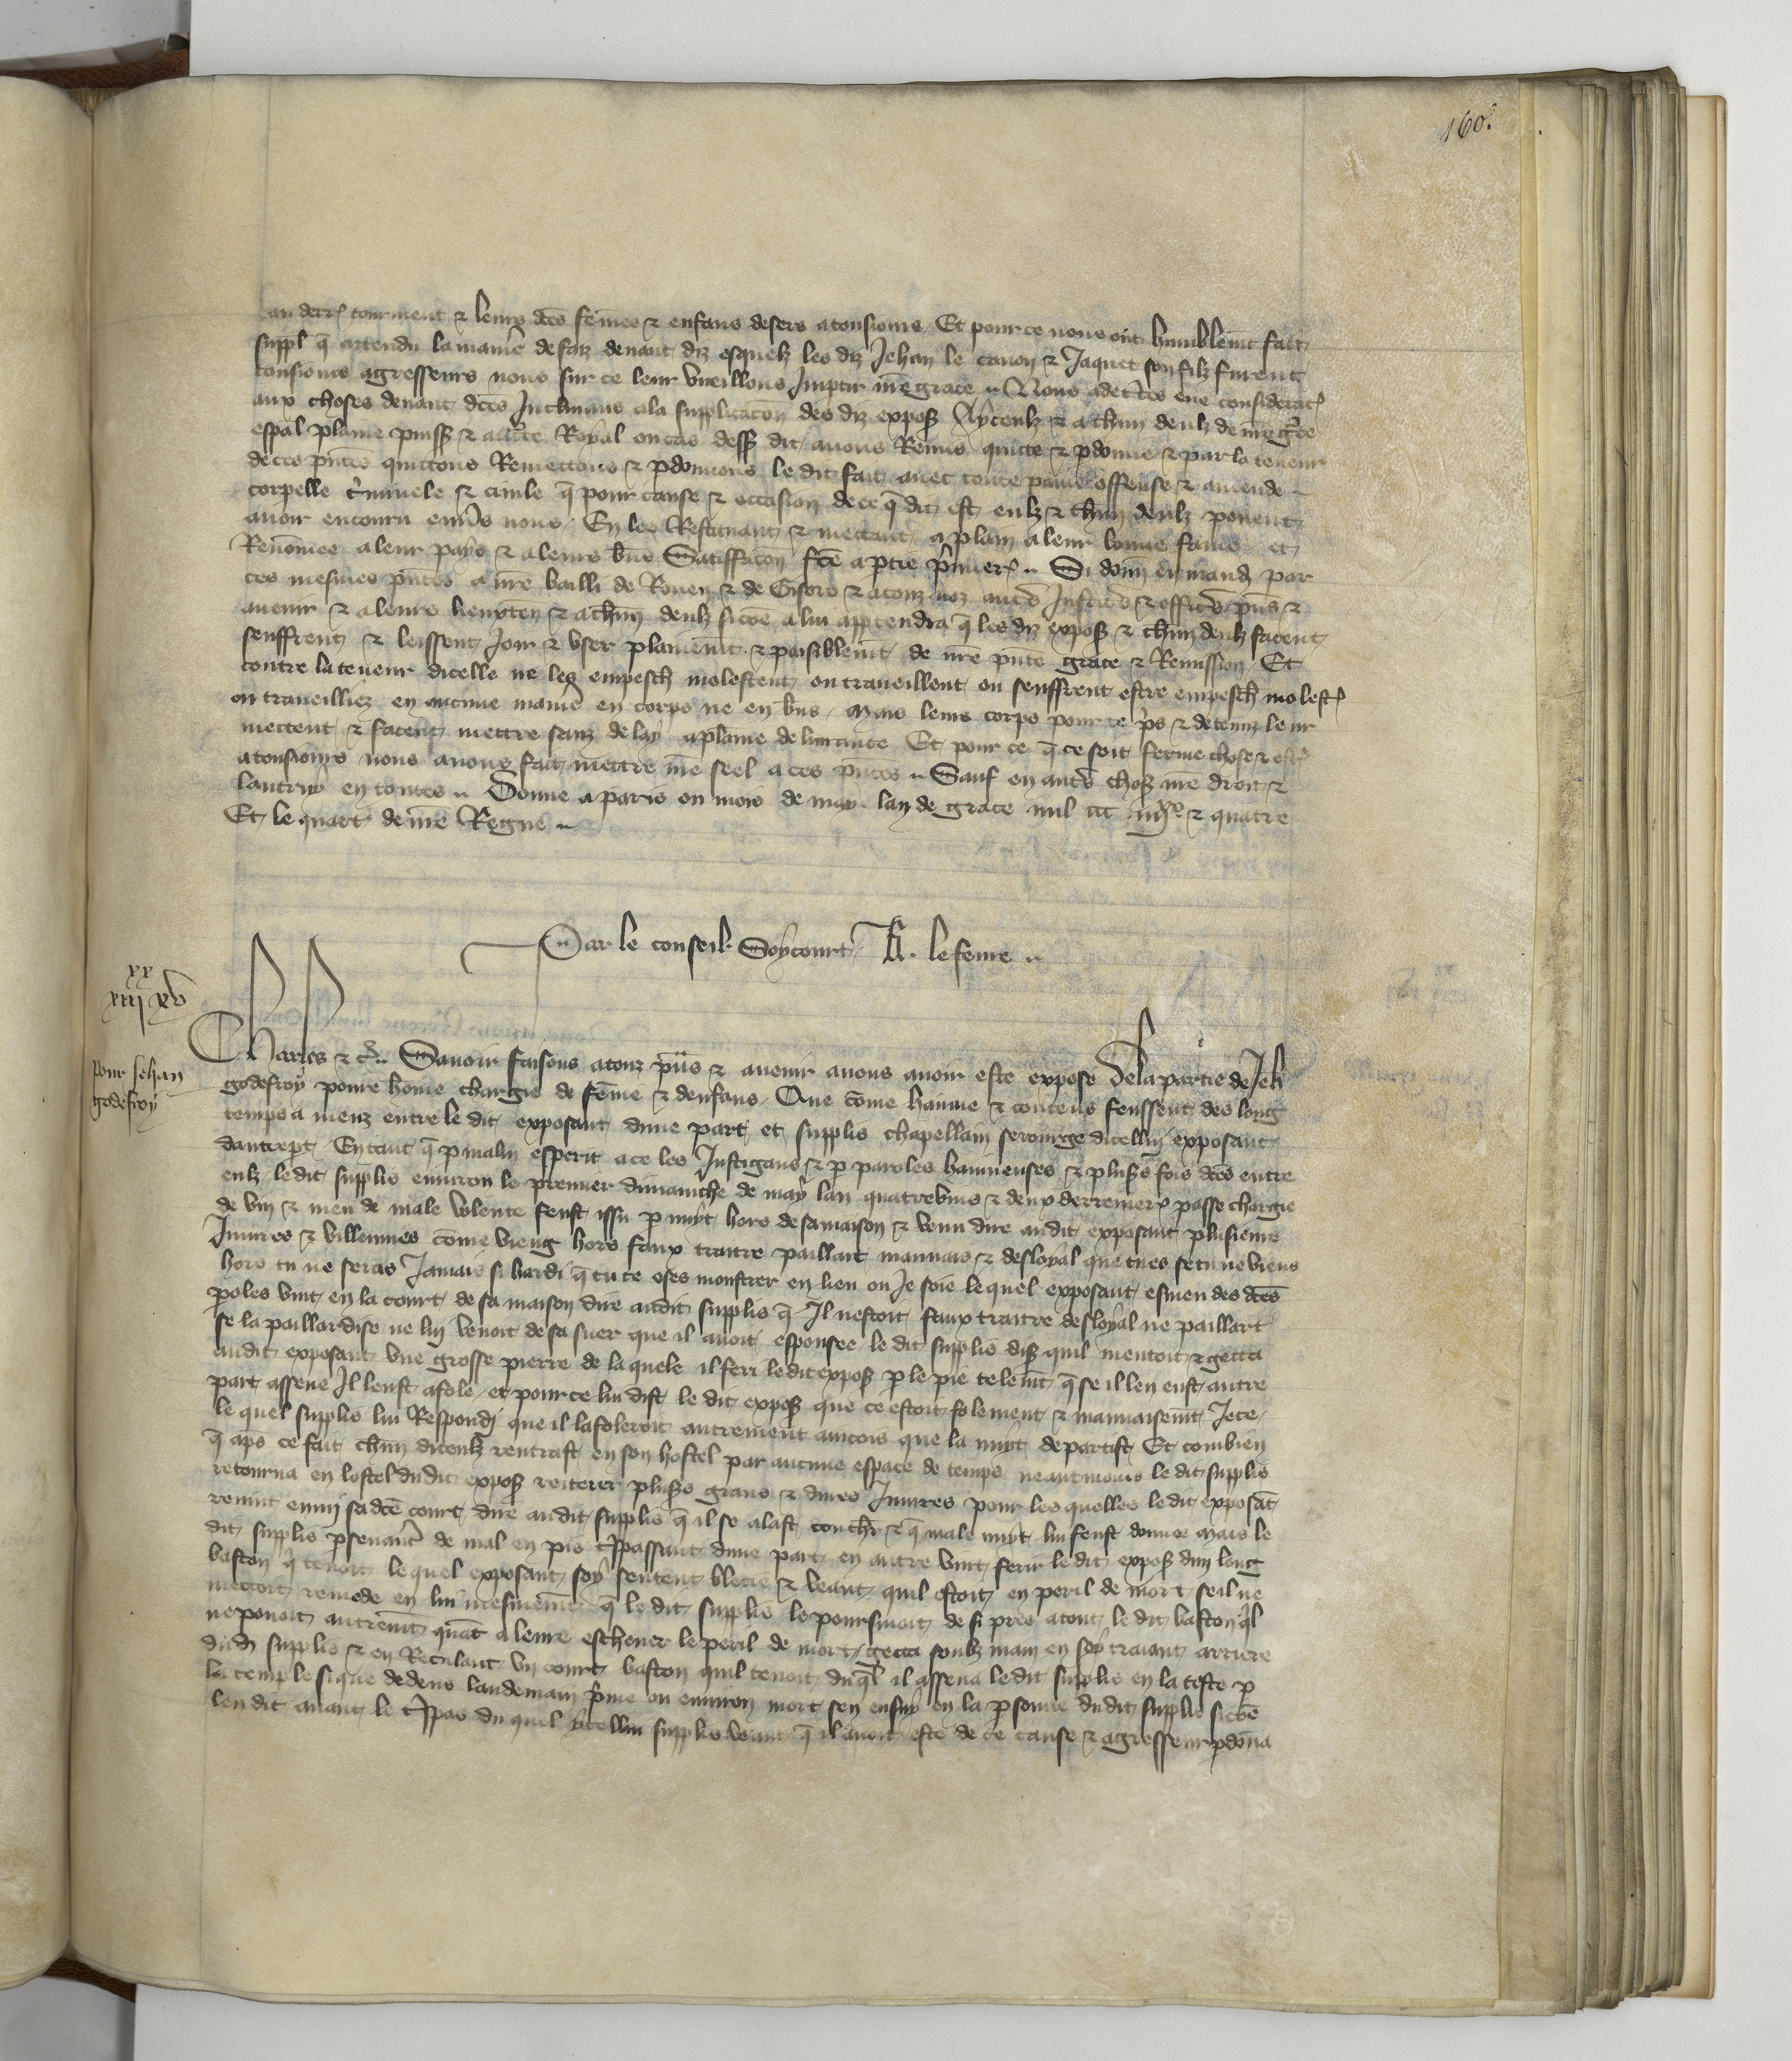 160.
au derr tourment & leurs dces femes & enfans desers a tousiours Et pour ce nous ont humblemt fait
suppl q attendu la maniere de faiz deuant diz esquelz les diz Jehan le canon & Jaquet son filz furent
tousiours agresseurs nous sur ce leur vueillons Impartir nre grace Nous adecertes eue considerat
aux choses deuant dces Inclinans a la supplicacon des diz exposs A yceulx & a chun deulx de nre grce
espal plaine puissance & auctte Royal ou cas dessus dit auons Remis quitte & pdonne & par la teneur
de ces pntes quittons Remettons & pdonnons le dit fait auec toute paine offense & amende
corpelle criminele & ciuile q pour cause & occasion de ce q dit est eulx & chun deulx peuent
auoir encouru enuers nous En les Restituant & mettant a plain a leur bonne fame et
Renomee a leur pays & a leurs biens Satiffacon fce a ptie pmier Si donn en mand par
ces mesmes pntes a nre bailli de Rouen & de Gisors & a touz noz autres Justiciers & officiers pns &
auenir & a leurs lieuxten & a chun deulx sicome a lui apptendra q les diz exposs & chun deulx facent
seuffrent & leissent Joir & vser plainemt & paisiblemt de nre pnte grace & Remission Et
contre la teneur dicelle ne les empesch molestent ou traueillent ou seuffrent estre empesch molest
ou traueilliez en aucune maniere en corps ne en biens Mais leurs corps pour ce pris & detenuz leur
mettent & facent mettre sanz delay a plaine deliurance Et pour ce q ce soit ferme chose & est
a tousiours nous auons fait mettre nre seel a ces pntes Sauf en autres choses nre droit &
lautruy en toutes Donne a paris ou mois de may lan de grace mil ccc iiijxx & quatre
Et le quart de nre Regne
Par le conseil Soycourt H. lefeure
xx
xiiij xv
Pour Jehan
godefroy
Charles &c Sauoir faisons a touz pns & auenir a nous auoir este expose De la partie de Jeh
godefroy poure home chargie de feme & denfans Que come haine & contens feussent des long
temps a meuz entre le dit exposant dune part et supplis chapellain serourge dicellui exposant
dautrept En tant q p malin esperit a ce les Instigans & p paroles haineuses & plusrs fois dces entre
eulx le dit supplis enuiron le premier dimanche de may lan quatrevins & deux derrenier passe chargie
de vin & meu de male volente feust issu p nuyt hors de sa maison & venu dire audit exposant plusieurs
Iniures & villennies come vieng hors faux traitre paillart mauuais & desloyal que tu es se tu ne viens
hors tu ne seras Jamais si hardi q tu te oses monstrer en lieu ou Je soie lequel exposant esmeu des dces
poles vint en la court de sa maison dire audit supplis q Il nestoit faux traitre desloyal ne paillart
se la paillardise ne lui venoit de sa suer que il auoit espousee le dit supplis disant quil mentoit & getta
audit exposant vne grosse pierre de laquele il feri le dit expos p le pie telemt q se il len eust autre
part assene Il leust afole et pour ce lui dist le dit expos que ce estoit folement & mauuaisemt Jete
le quel supplis lui Respondi que il lafoleroit autrement aincois que la nuyt departist Et combien
q aps ce fait chun diceulx rentrast en son hostel par aucune espace de temps neantmoins le dit supplis
retourna en lostel dudit expos reiterer plusrs grans & dures Iniures pour lesquelles le dit exposat
reuint enmi sa dce court dire audit supplis q il se alast couchr & q male nuyt lui feust donnee Mais le
dit supplis pseuerant de mal en pis trespassant dune part en autre vint ferir le dit expos dun long
baston ql tenoit lequel exposant soy sentent blecie & veant quil estoit en peril de mort se il ne
mettoit remede en lui mesmement q le dit supplis le poursuioit de si pres a tout le dit baston ql
ne pouoit autremt quat a leure escheuer le peril de mort getta soubz main en soy traiant arriere
dudit supplis & en Reculant vn court baston quil tenoit du ql il assena le dit supplis en la teste p
la temple si que dedens landemain prime ou enuiron mort sen ensuy en la psonne dudit supplis sicome
len dit auant le trespas du quel ycellui supplis veant q il auoit este de ce cause & agresseur pdonna